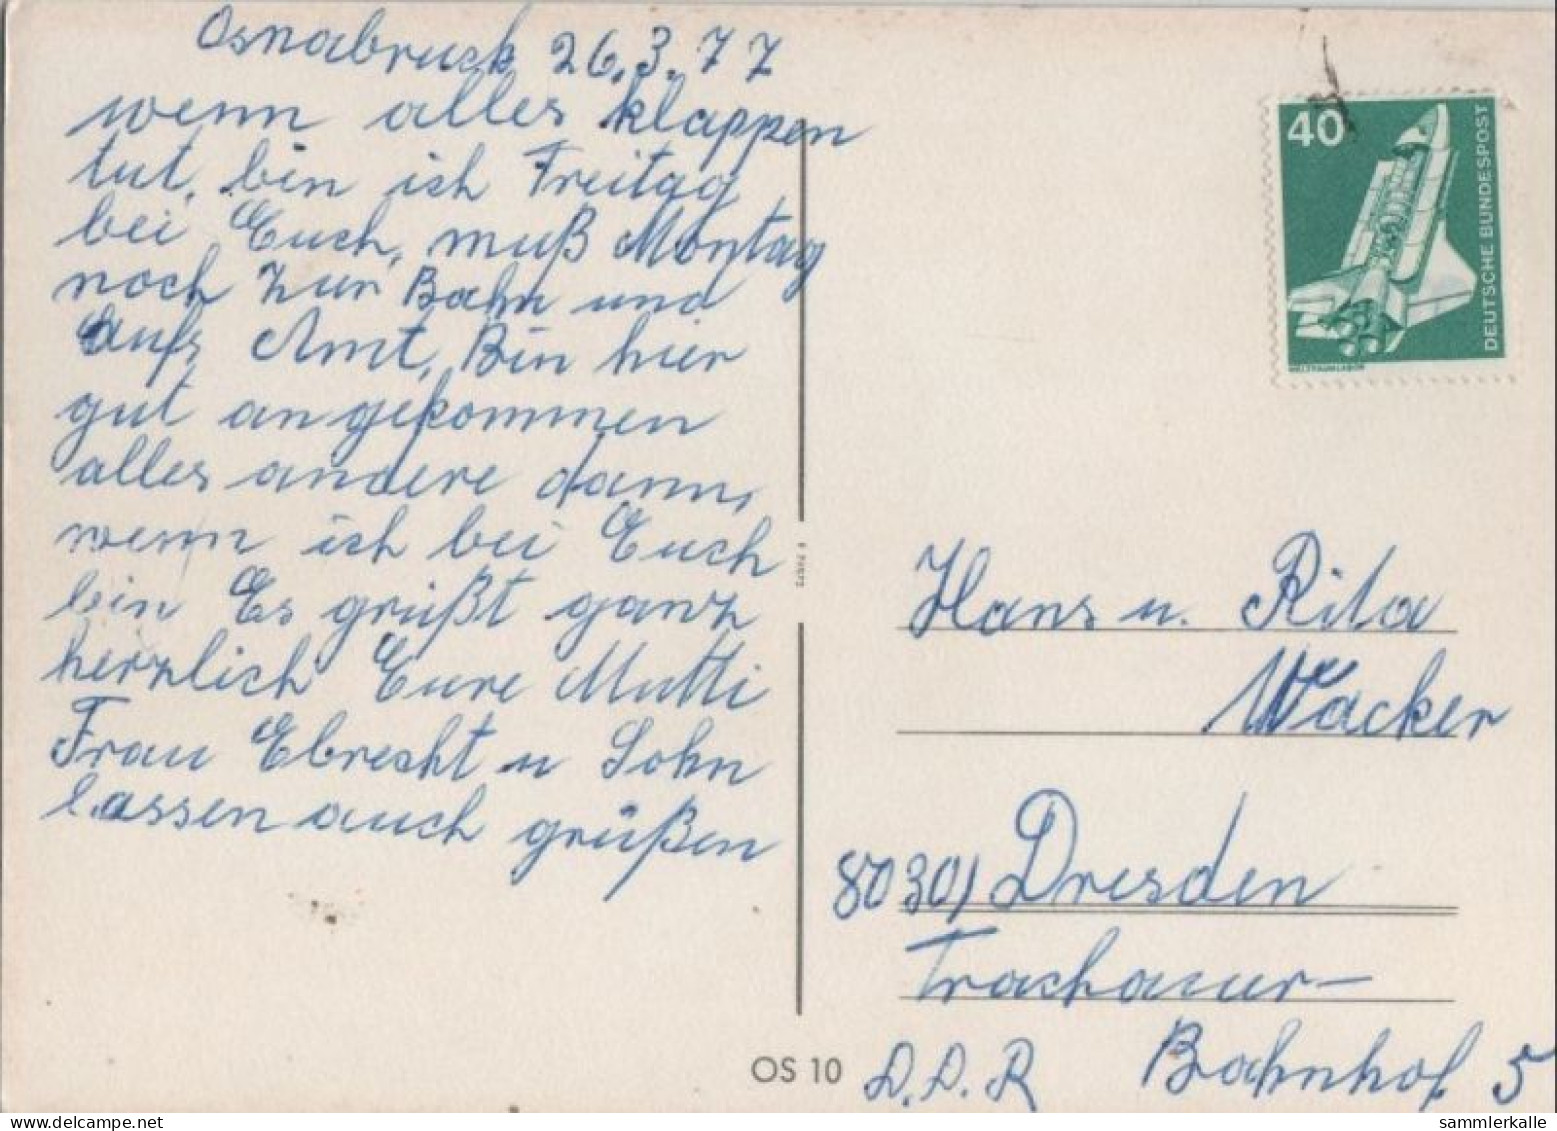 Osnabruck 26.3.77
wenn alles klappen
tut, bin ich Freitag
bei Euch, muß Montag
noch zur Bahn und
aufs Amt, Bin hier
gut angekommen
alles andere dann,
wenn ich bei Euch
bin Es grüßt ganz
herzlich Eure Mutti
Frau Ebrecht u Sohn
lassen auch grüßen
40
DEUTSCHE BUNDESPOST
WELTRAUMLABOR
Hans u. Rita
Wacker
8030/ Dresden
Trachauer-
D.D.R Bahnhof 5
OS 10
sammlerkalle